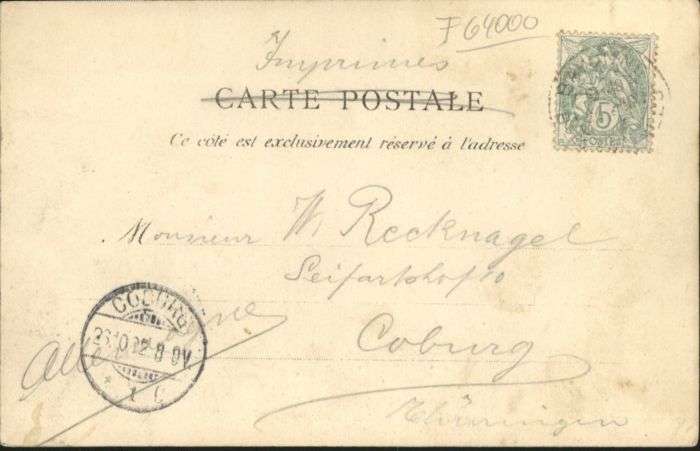 F 64000
Imprimés
CARTE POSTALE
Ce côté est exclusivement réservé à l'adresse
5
Monsieur W. Recknagel
Seifartshof 10
Coburg
Thüringen
COBURG
23 10 02 8-9V
* 1 c